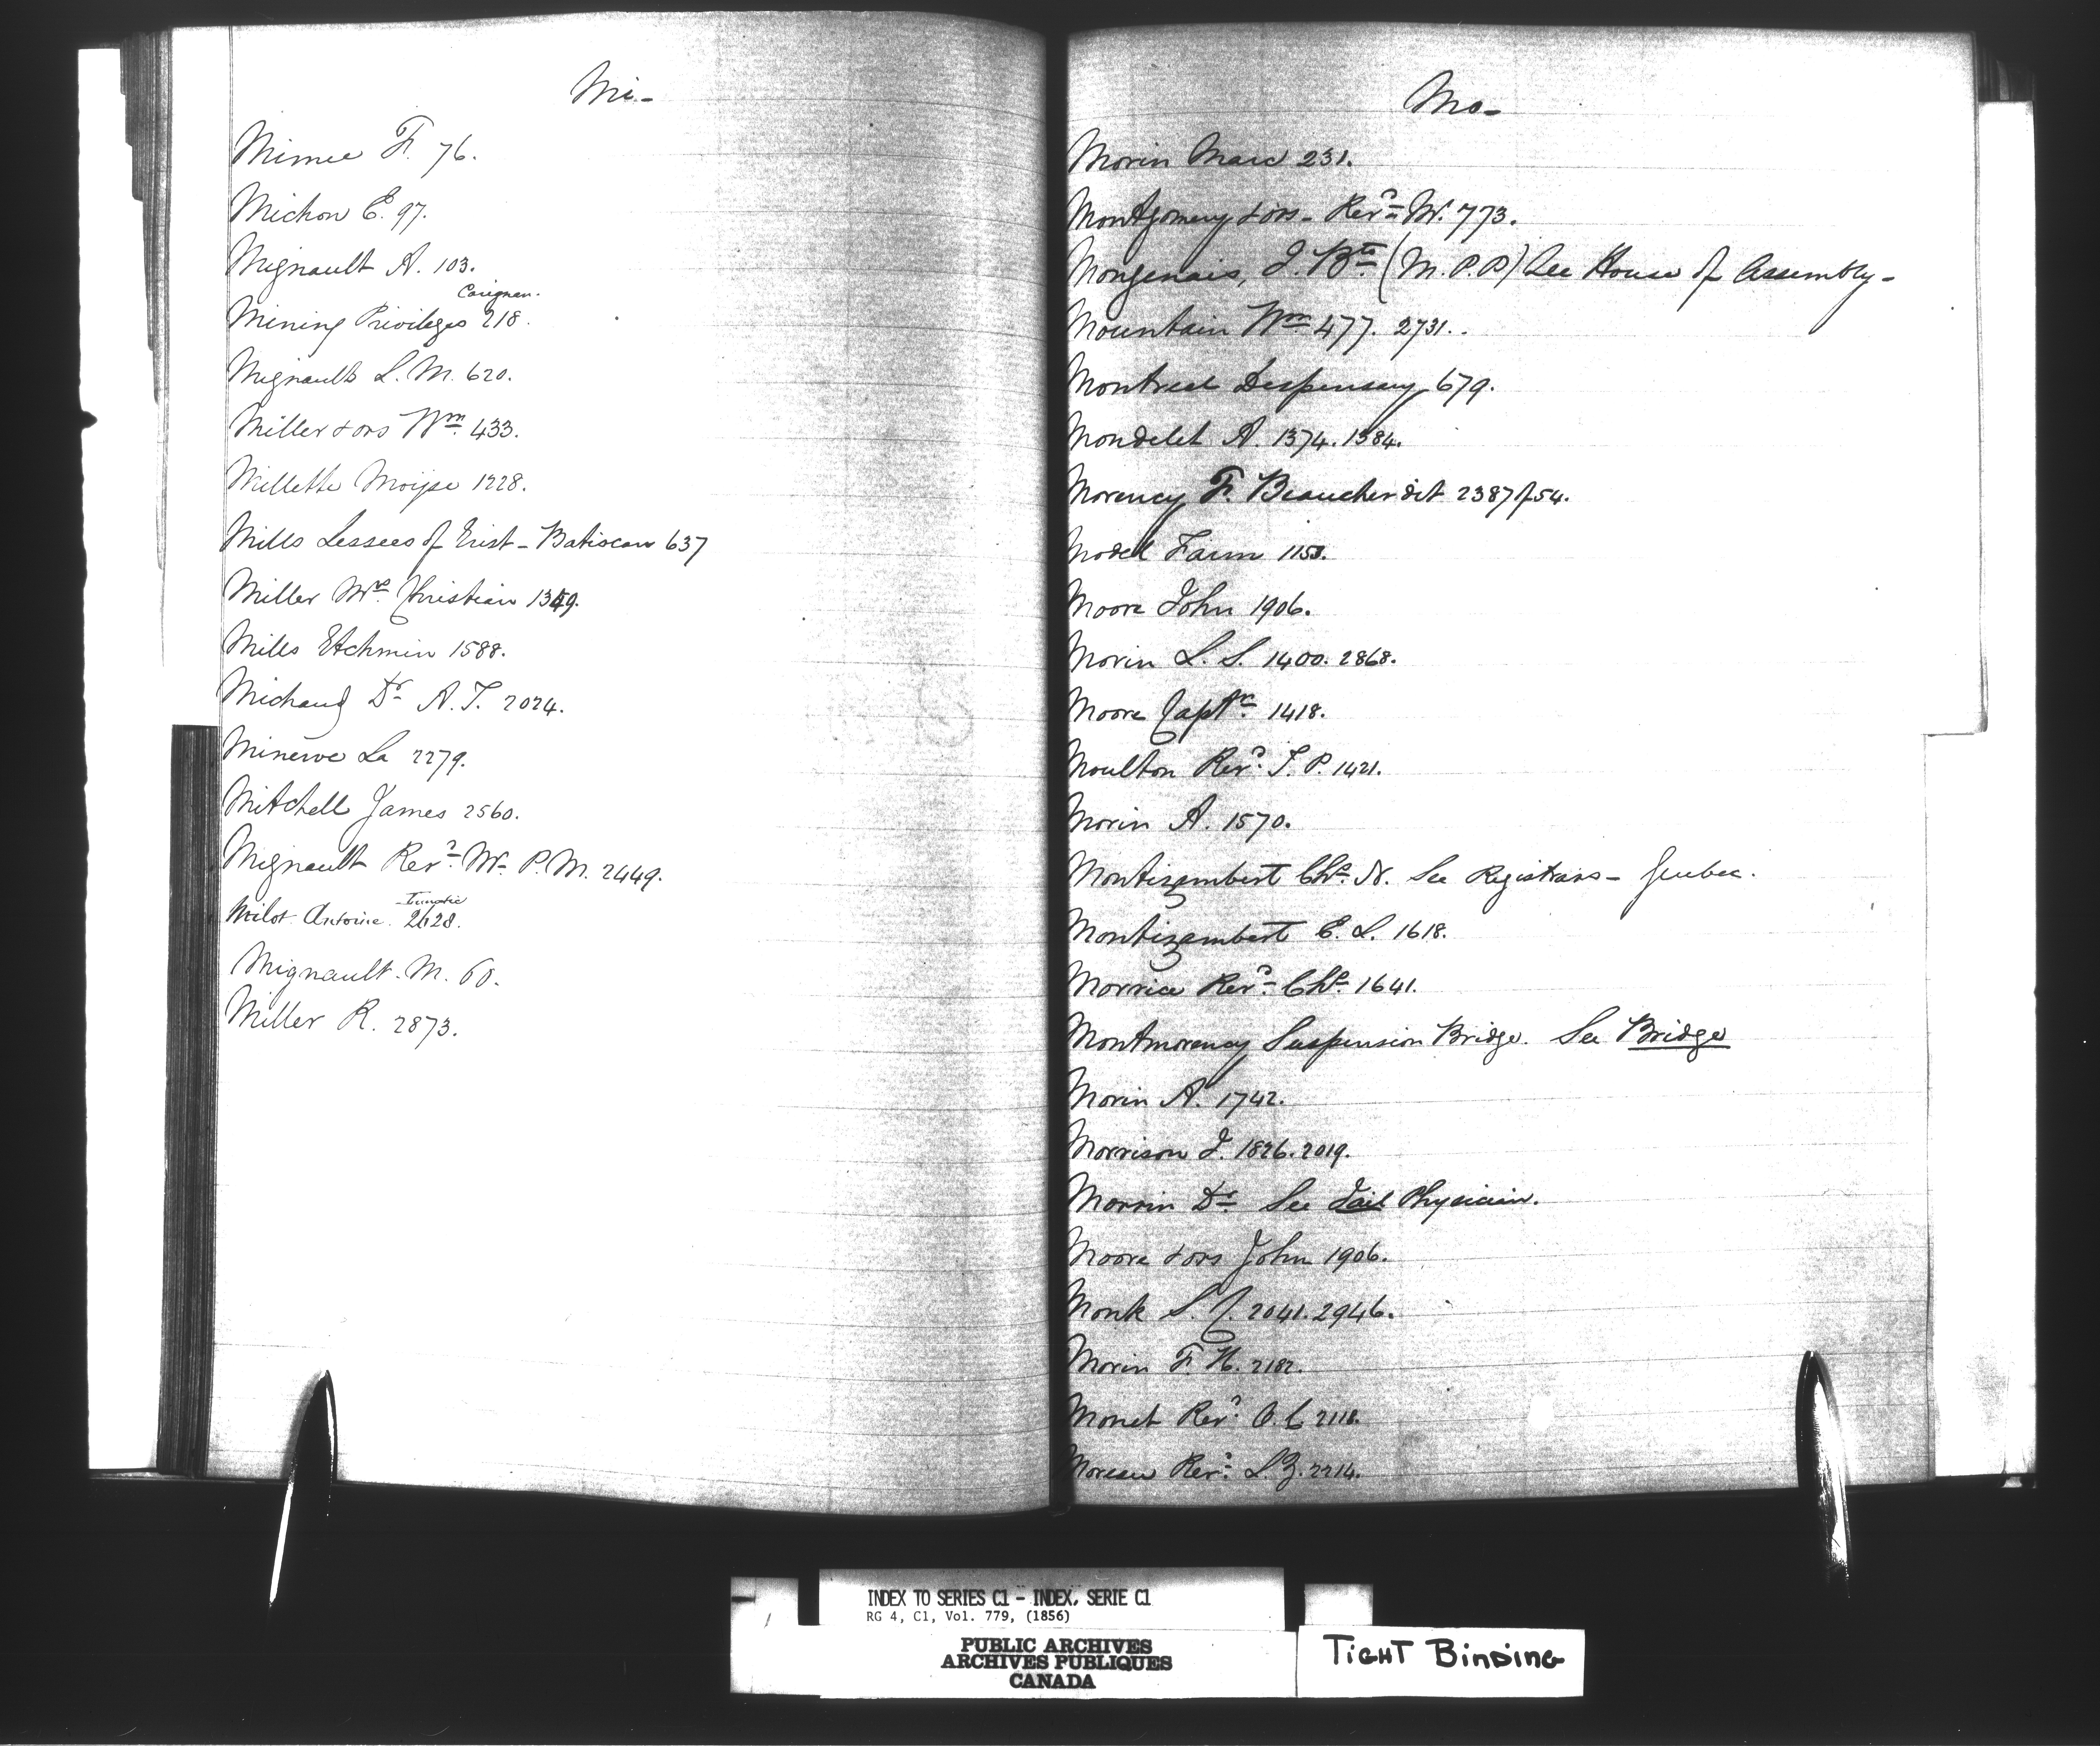 Mi-
Mimee F. 76.
Michon E. 97.
Mignault A. 103.
Carignan.
Mining Privileges 218.
Mignault L. M. 620.
Miller & ors Wm. 433.
Millette Moyse 1228.
Mills Lessees of Grist - Batiscan 637
Miller Mrs. Christian 1349.
Mills Etchmin 1588.
Michaud Dr A. T. 2024.
Minerve La 2279.
Mitchell James 2560.
Mignault Revd. Mr. P. M. 2449.
Lunatic
Milot Antoine. 2628.
Mignault. M. 60.
Miller R. 2873.
Mo-
Morin Marc 231.
Montgomery & ors - Revd. W. 773.
Mongenais, J. Bte (M.P.P) See House of Assembly -
Mountain Wm 477. 2731.
Montreal Dispensary 679.
Mondelet A. 1374. 1384.
Morency F. Beaucher dit 2387 of 54.
Model Farm 1153.
Moore John 1906.
Morin L. S. 1400. 2868.
Moore Captn. 1418.
Moulton Revd. T. P. 1421.
Morin A. 1570.
Montizambert Chs. N. See Registrars - Quebec.
Montizambert E. L. 1618.
Morrice Revd. Chs. 1641.
Montmorency Suspension Bridge. See Bridge
Morin A. 1742.
Morrison J. 1826. 2019.
Morrin Dr See Jail Physician.
Moore & ors John 1906.
Monk S. C. 2041. 2946.
Morin F. H. 2182.
Monet Revd. 2118.
Moreau Revd. L. Z. 2214.
INDEX TO SERIES C1 - INDEX, SERIE C1
RG 4, C1, Vol. 779, (1856)
PUBLIC ARCHIVES
ARCHIVES PUBLIQUES
CANADA
TIGHT BINDING